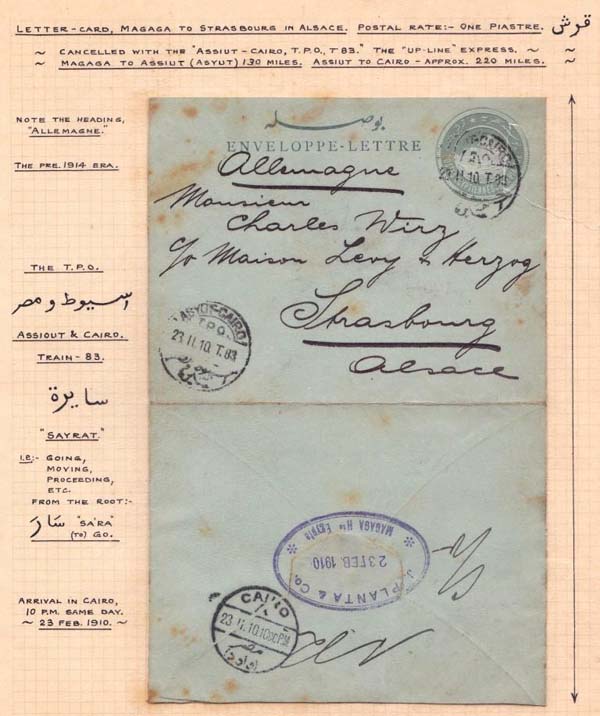 LETTER-CARD, MAGAGA TO STRASBOURG IN ALSACE. POSTAL RATE:- ONE PIASTRE. قرش
~ CANCELLED WITH THE "ASSIUT-CAIRO, T.P.O., T 83." THE "UP-LINE" EXPRESS. ~ ~
~ MAGAGA TO ASSIUT (ASYUT) 130 MILES. ASSIUT TO CAIRO - APPROX. 220 MILES. ~
NOTE THE HEADING,
"ALLEMAGNE."
THE PRE. 1914 ERA.
THE T.P.O.
اسيوط و مصر
ASSIOUT & CAIRO.
TRAIN - 83.
سايرة
"SAYRAT."
I.E:- GOING,
MOVING,
PROCEEDING,
ETC.
FROM THE ROOT:-
سَارَ "SA'RA"
(TO) GO.
ARRIVAL IN CAIRO,
10 P.M. SAME DAY.
~ 23 FEB. 1910. ~
بوصله
ENVELOPPE-LETTRE
23.II.10.T.83
Allemagne
Monsieur
Charles Wirz
c/o Maison Levy & Herzog
Strasbourg
Alsace
ASYUT-CAIRO
T.P.O.
23.II.10.T.83
J. PLANTA & Co.
23 FEB. 1910
MAGAGA Hte EGYPTE
CAIRO
23.II.10.10 PM
مصر